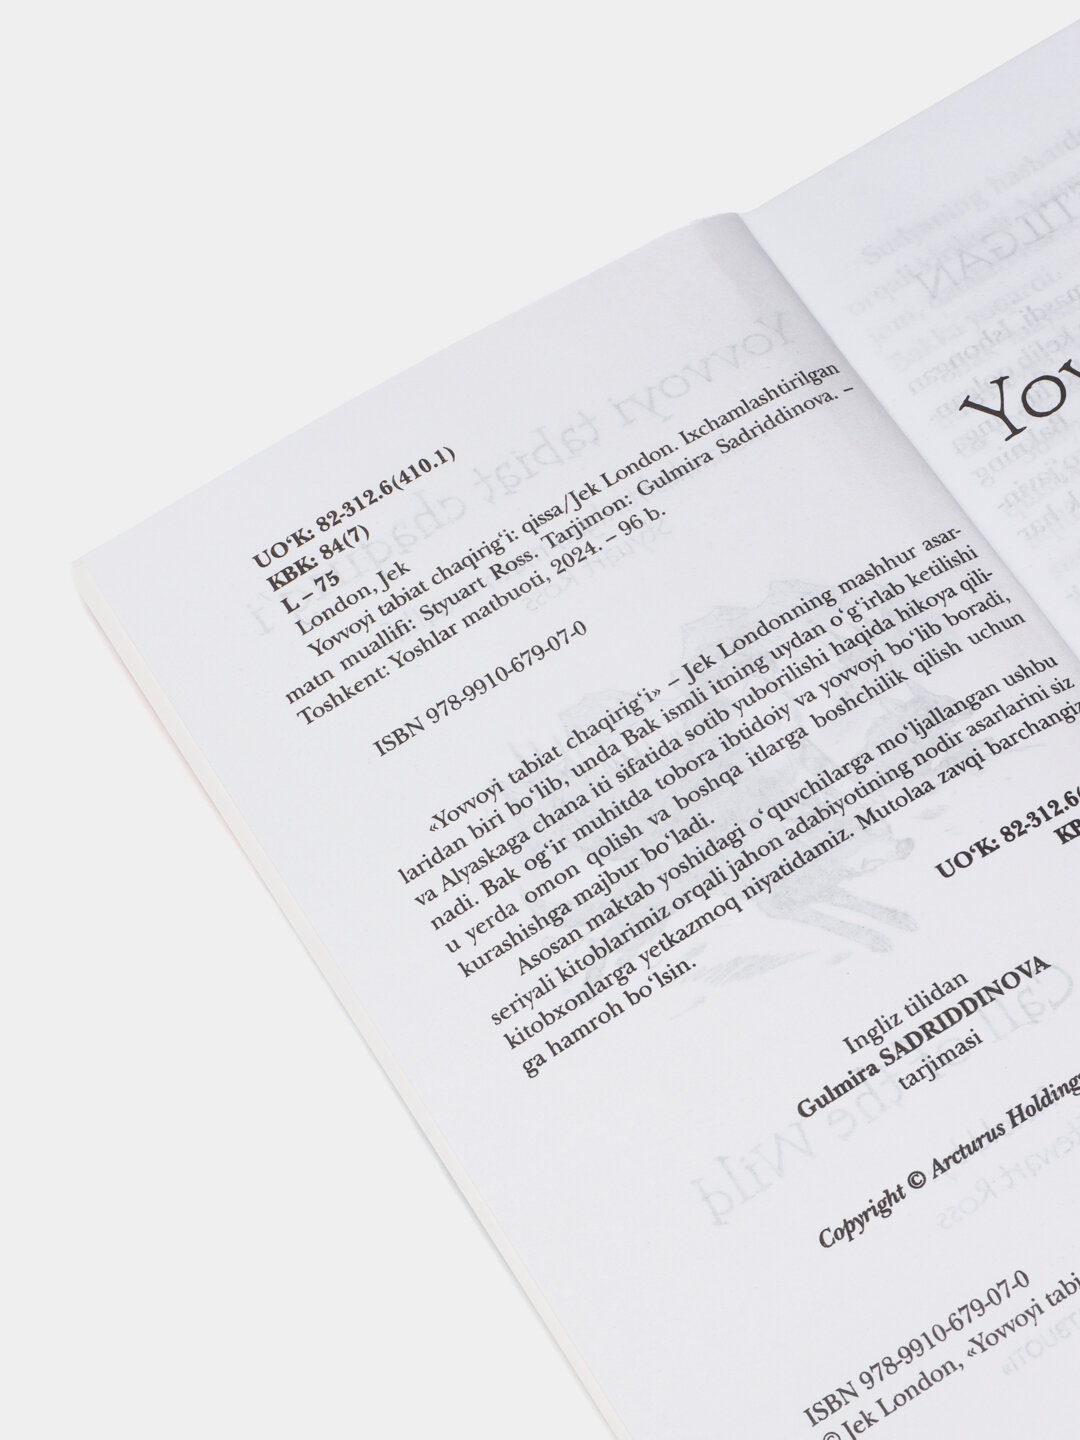 UO‘K: 82-312.6(410.1)
KBK: 84(7)
L – 75
London, Jek
Yovvoyi tabiat chaqirig‘i: qissa/Jek London. Ixchamlashtirilgan
matn muallifi: Styuart Ross. Tarjimon: Gulmira Sadriddinova. –
Toshkent: Yoshlar matbuoti, 2024. – 96 b.
ISBN 978-9910-679-07-0
«Yovvoyi tabiat chaqirig‘i» – Jek Londonning mashhur asar-
laridan biri bo‘lib, unda Bak ismli itning uydan o‘g‘irlab ketilishi
va Alyaskaga chana iti sifatida sotib yuborilishi haqida hikoya qili-
nadi. Bak og‘ir muhitda tobora ibtidoiy va yovvoyi bo‘lib boradi,
u yerda omon qolish va boshqa itlarga boshchilik qilish uchun
kurashishga majbur bo‘ladi.
Asosan maktab yoshidagi o‘quvchilarga mo‘ljallangan ushbu
seriyali kitoblarimiz orqali jahon adabiyotining nodir asarlarini siz
kitobxonlarga yetkazmoq niyatidamiz. Mutolaa zavqi barchangiz
ga hamroh bo‘lsin.
UO‘K: 82-312.6(
KB
Ingliz tilidan
Gulmira SADRIDDINOVA
tarjimasi
Copyright © Arcturus Holdings
ISBN 978-9910-679-07-0
© Jek London, «Yovvoyi tabi
Yov